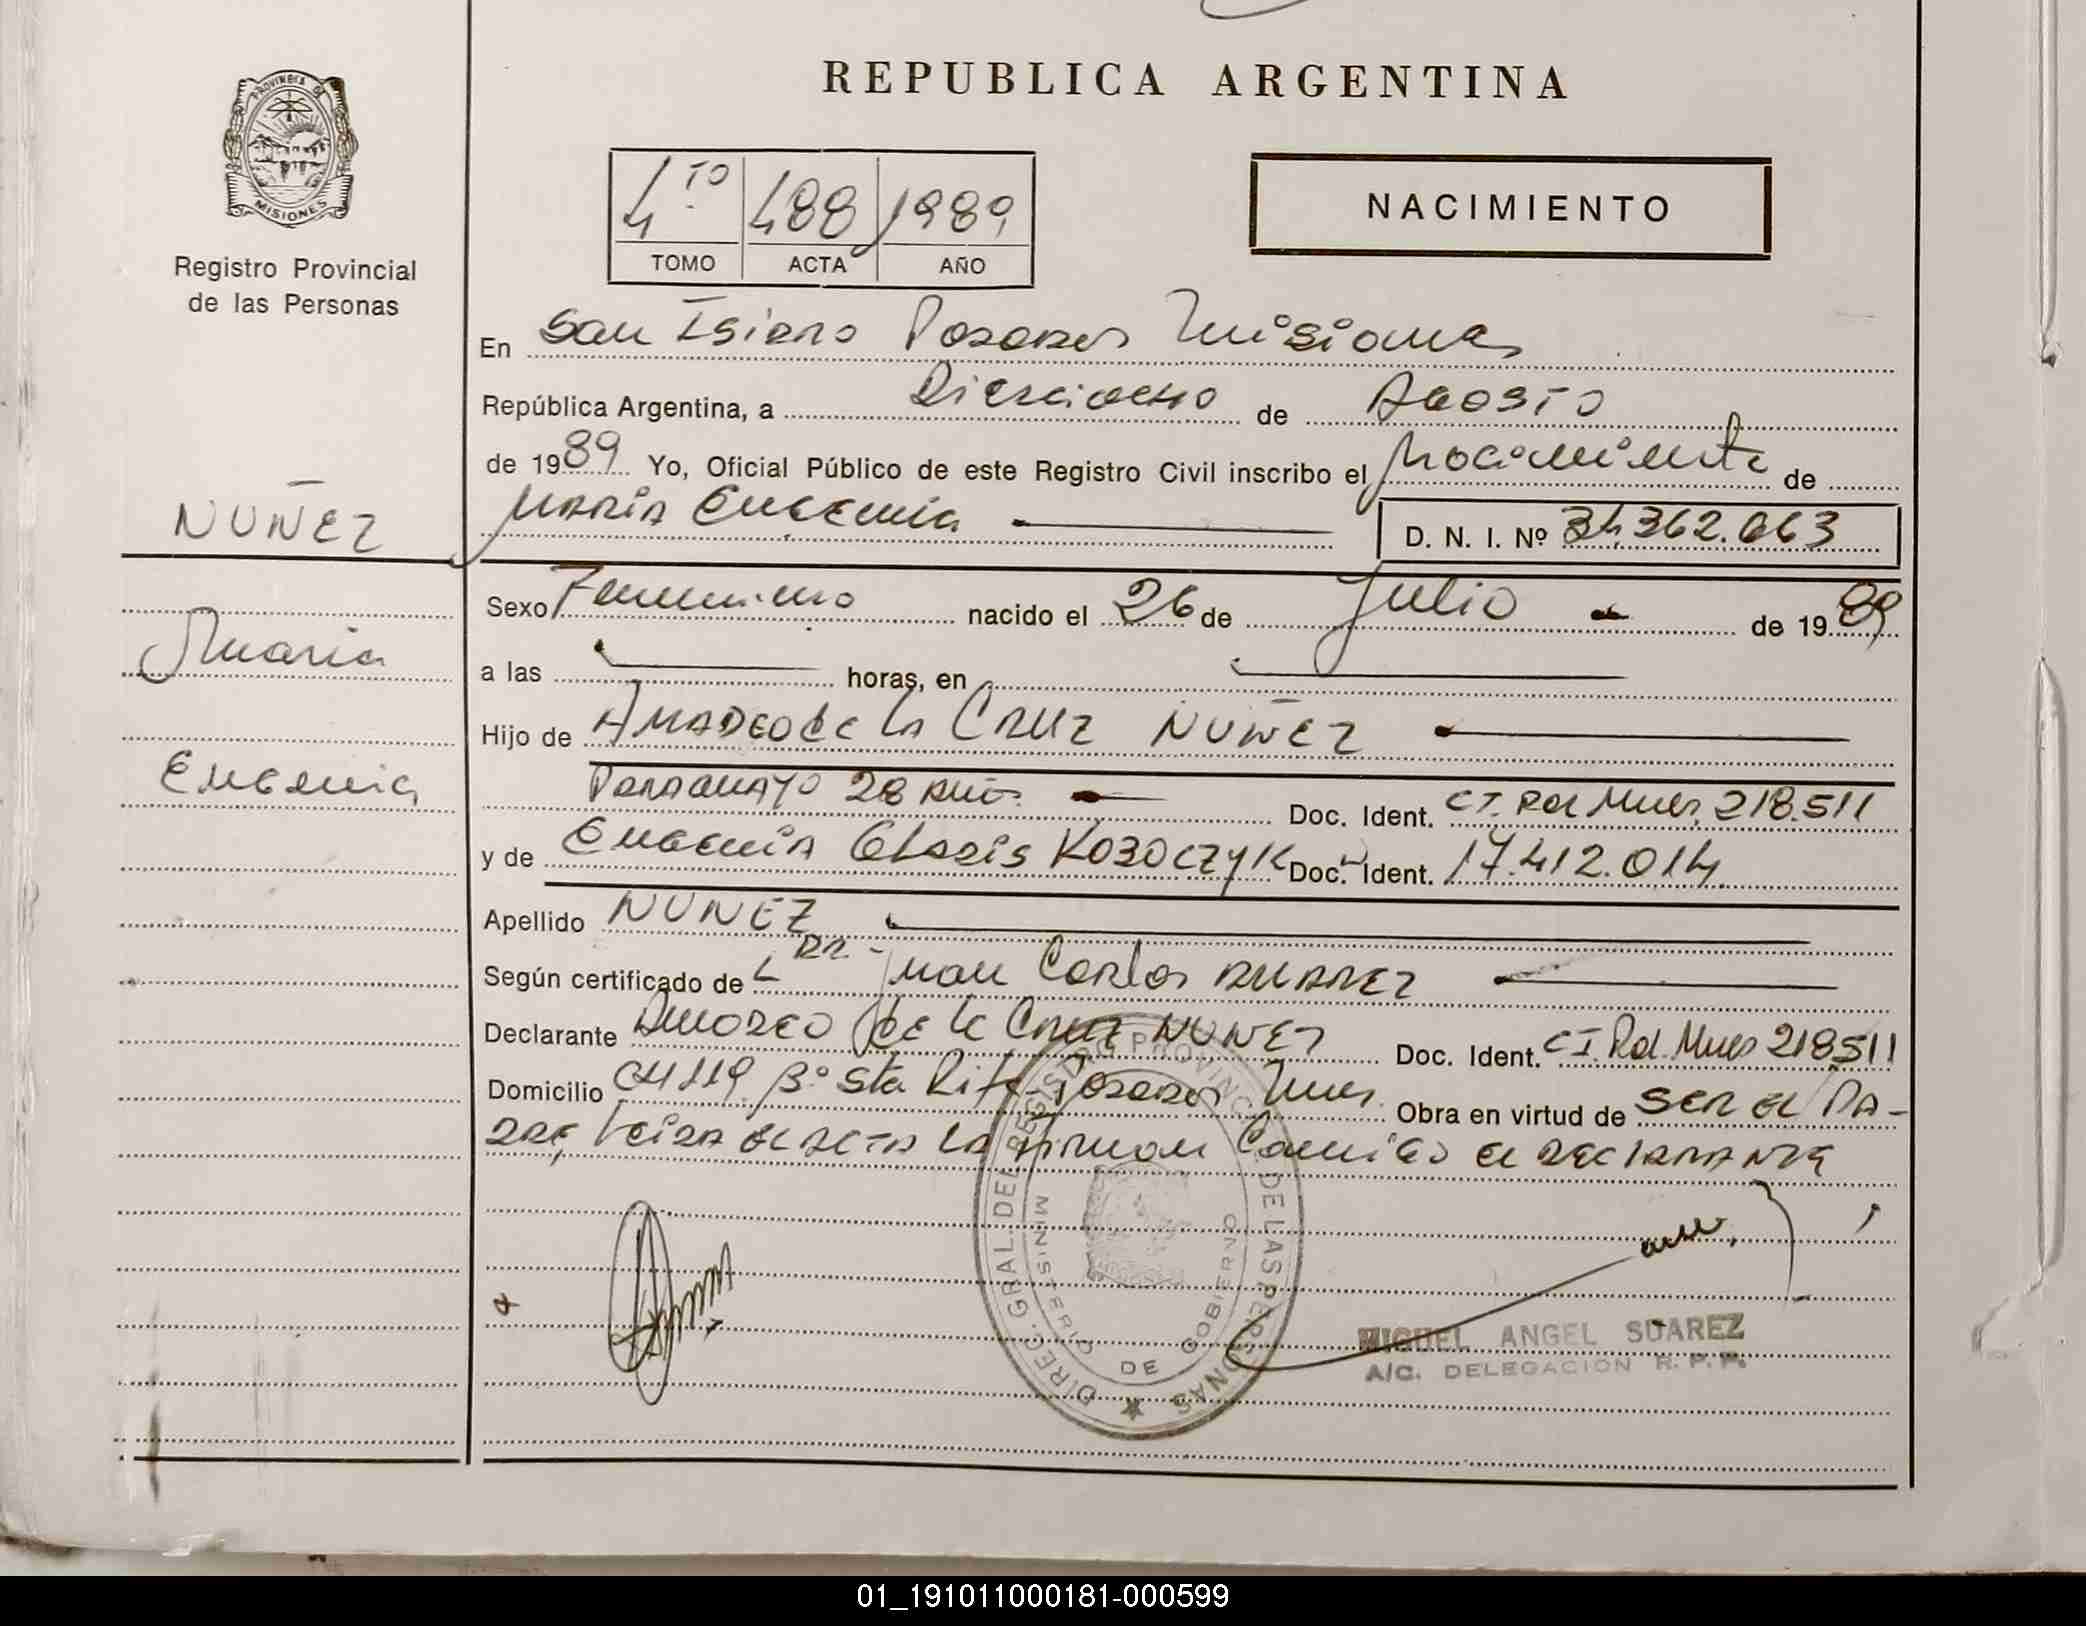 REPUBLICA ARGENTINA
PROVINCIA DE
MISIONES
Registro Provincial
de las Personas
4to 488 1989
TOMO ACTA AÑO
NACIMIENTO
En San Isidro Posadas Misiones
República Argentina, a Dieciocho de Agosto
de 1989 Yo, Oficial Público de este Registro Civil inscribo el Nacimiento de
NUÑEZ
María Eugenia D. N. I. Nº 34.362.063
Sexo Femenino nacido el 26 de Julio de 1989
Maria
a las horas, en
Hijo de AMADEO de la CRUZ NUÑEZ
Eugenia
Paraguayo 28 años Doc. Ident. CI. Pol Mnes. 218.511
y de Eugenia Gladis KOZOCZYK Doc. Ident. 17.412.014
Apellido NUÑEZ
Según certificado de Dr. Juan Carlos
Declarante Amadeo de la Cruz NUÑEZ Doc. Ident. CI. Pol. Mnes 218511
Domicilio CH 119 Bº Sta Rita Posadas Mnes. Obra en virtud de SER EL PA-
DRE, leida el acta la firman conmigo el declarante
DIREC. GRAL. DEL REGISTRO PROVINCIAL DE LAS PERSONAS
MINISTERIO DE GOBIERNO
MIGUEL ANGEL SUAREZ
A/C. DELEGACION R. P. P.
01_191011000181-000599